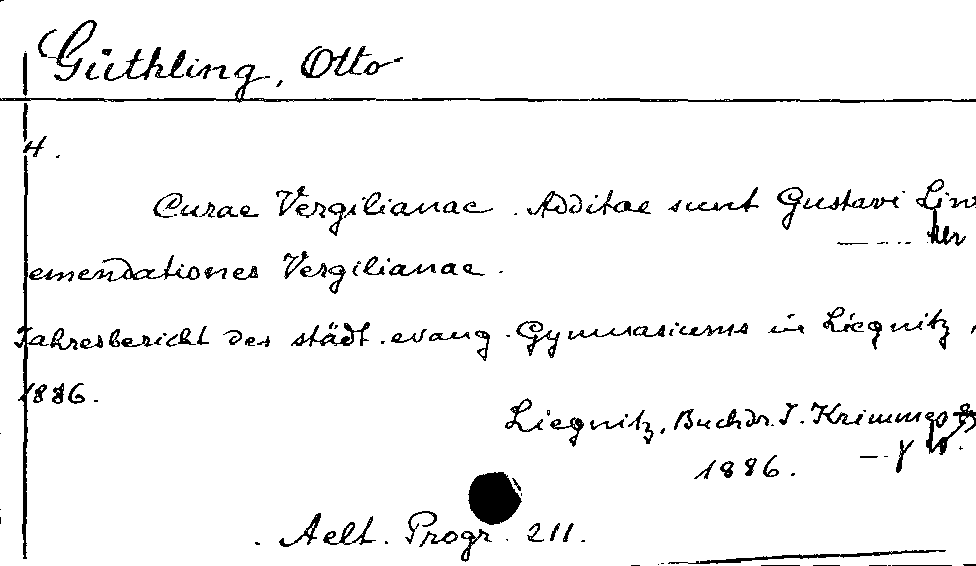 Güthling, Otto
4.
Curae Vergilianae. Additae sunt Gustavi
emendationes Vergilianae.
Jahresbericht des städt. evang. Gymnasiums in Liegnitz,
1886.
Liegnitz, Buchdr. J. Krimmer
1886.
Aelt. Progr. 211.